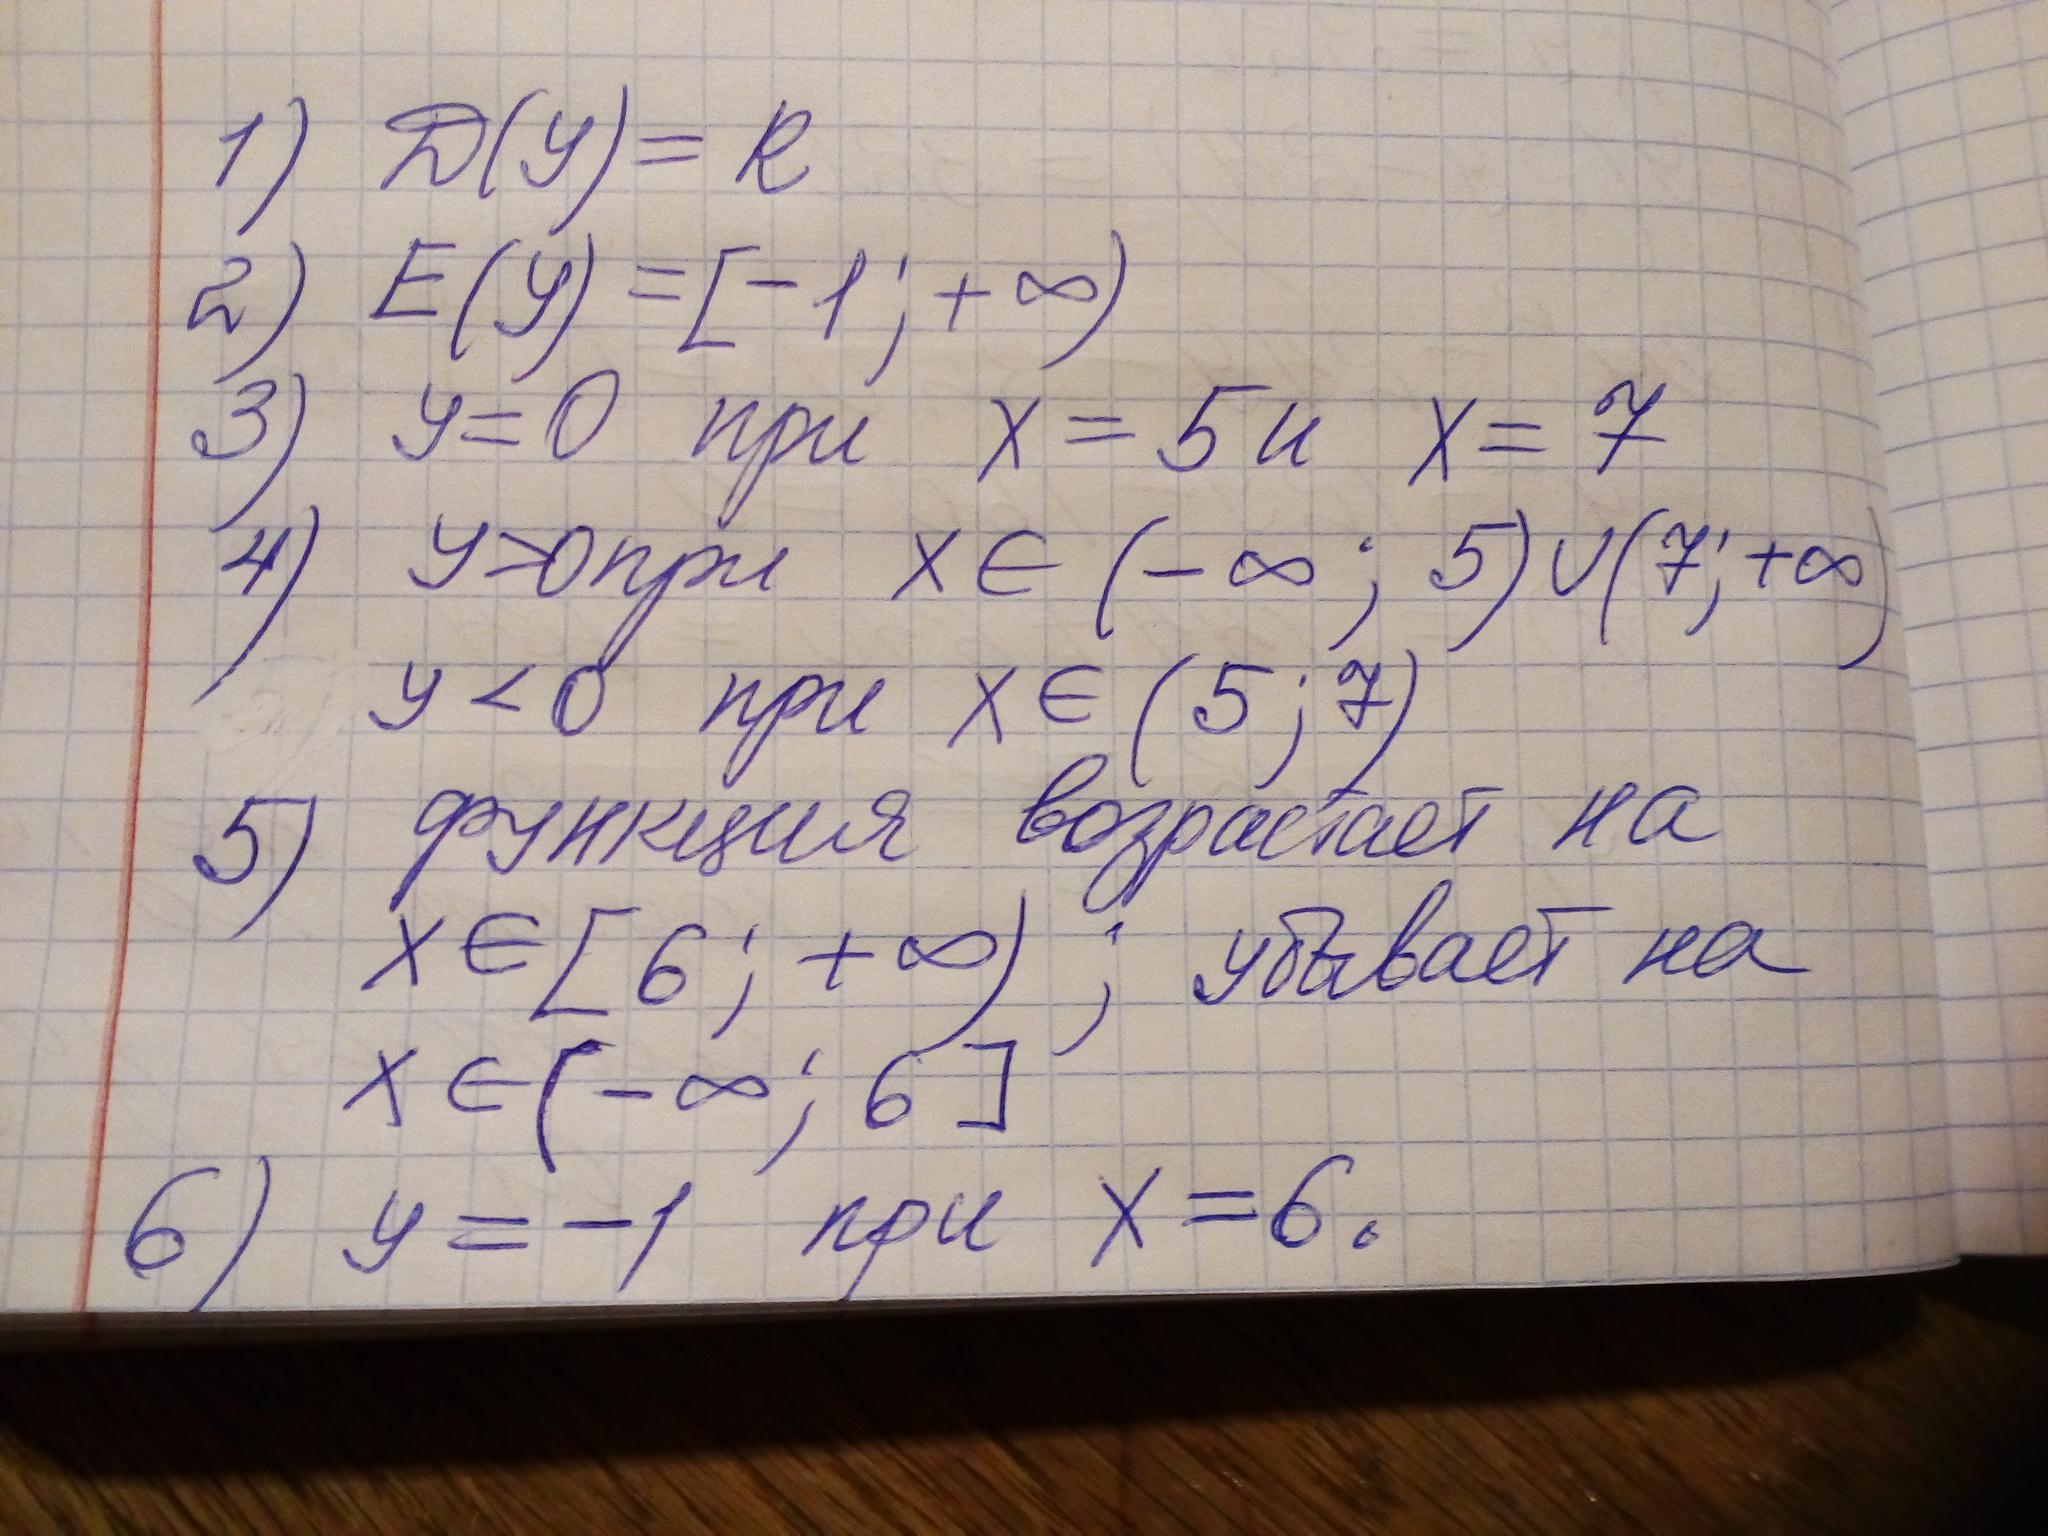 1) D(y) = R
2) E(y) = [-1; +∞)
3) y = 0 при x = 5 и x = 7
4) y > 0 при x ∈ (-∞; 5) ∪ (7; +∞)
y < 0 при x ∈ (5; 7)
5) функция возрастает на
x ∈ [6; +∞) ; убывает на
x ∈ (-∞; 6]
6) y = -1 при x = 6.